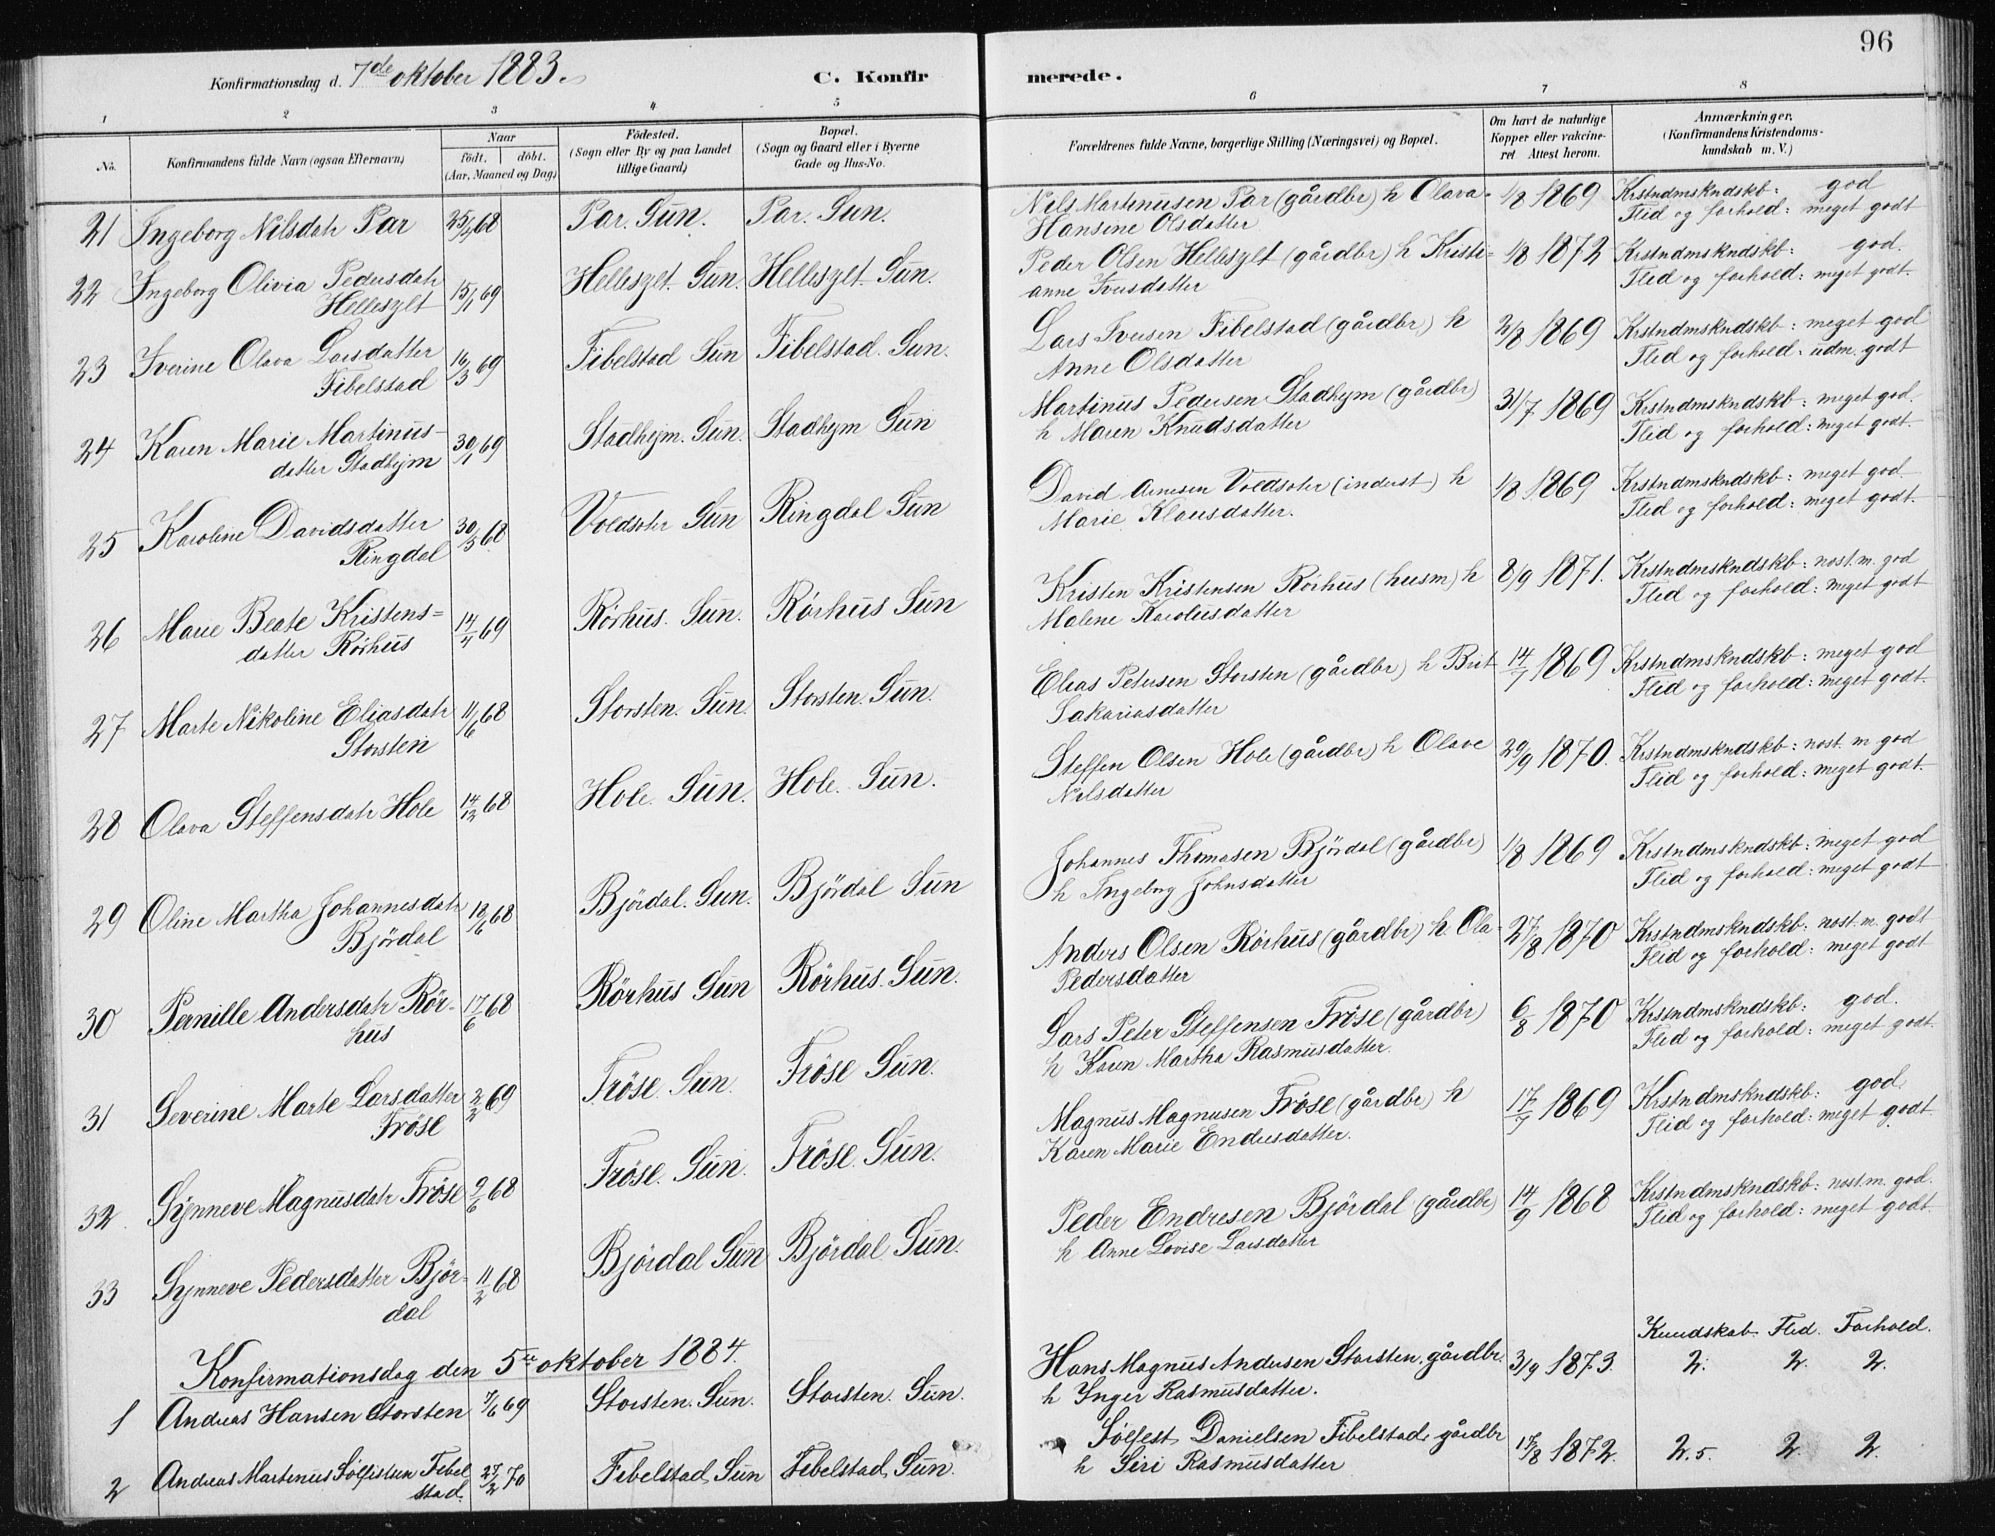 96
Konfirmationsdag d. 7de oktober 1883.
C. Konfirmerede.
1 2 3 4 5 6 7 8
No. Konfirmandens fulde Navn (ogsaa Efternavn) Naar født. døbt. (Aar, Maaned og Dag) Fødested. (Sogn eller By og paa Landet tillige Gaard) Bopæl. (Sogn og Gaard eller i Byerne Gade og Hus-No. Forældrenes fulde Navne, borgerlige Stilling (Næringsvei) og Bopæl. Om havt de naturlige Kopper eller vakcineret Attest herom. Anmærkninger. (Konfirmandens Kristendomskundskab m. V.)
21 Ingeborg Nilsdatr Par 68 Par. Sun. Par. Sun. Nils Martinusen Par (gårdbr) h Olava 1/8 1869 Krstndmskndskb: god
Hansine Olsdatter Flid og forhold: meget godt
22 Ingeborg Olivia Pedersdatr 15/1 69 Hellesylt. Sun. Hellesylt. Sun. Peder Olsen Hellesylt (gårdbr) h Kristi- 1/8 1872 Krstndmskndskb: god.
Hellesylt anne Iversdatter Flid og forhold: meget godt.
23 Iverine Olava Larsdatter 16/3 69 Fibelstad Sun Fibelstad. Sun. Lars Iversen Fibelstad (gårdbr) h 2/8 1869 Krstndmskndskb: meget god
Fibelstad Anne Olsdatter Flid og forhold: udm. godt
24 Karen Marie Martinus- 30/1 69 Stadhejm. Sun. Stadhejm Sun Martinus Pedersen Stadhejm (gårdbr) 31/7 1869 Krstndmskndskb: meget god.
datter Stadhejm h Maren Knudsdatter Flid og forhold: meget godt.
25 Karoline Davidsdatter 30/3 68 Voldsæter Sun Ringdal Sun David Arnesen Voldsæter (inderst) h 1/8 1869 Krstndmskndskb: meget god
Ringdal Marie Klausdatter. Flid og forhold: meget godt.
26 Marie Beate Kristens= 14/4 69 Rörhus. Sun. Rörhus Sun Kristen Kristensen Rörhus (husm) h 8/9 1871. Krstndmskndskb: nost. m. god
datter Rörhus Malene Karolusdatter Flid og forhold: meget godt
27 Marte Nikoline Eliasdatr 11/6 68 Storsten. Sun. Storsten. Sun. Elias Petersen Storsten (gårdbr) h Brit 14/7 1869 Krstndmskndskb: meget god
Storsten Sakariasdatter Flid og forhold: meget godt.
28 Olava Steffensdatr Hole 14/12 68 Hole. Sun. Hole. Sun. Steffen Olsen Hole (gårdbr) h Olave 29/9 1870. Krstndmskndskb: nost. m god
Nilsdatter Flid og forhold: meget godt.
29 Oline Martha Johannesdatr 18/6 68 Björdal. Sun. Björdal Sun Johannes Thomasen Björdal (gårdbr) 1/8 1869 Krstndmskndskb: meget god
Björdal h Ingeborg Johnsdatter Flid og forhold: meget godt
30 Pernille Andersdatr Rör- 17/6 68 Rörhus Sun Rörhus. Sun. Anders Olsen Rörhus (gårdbr) h. Ola- 27/8 1870 Krstndmskndskb: nost. m. godt
hus Pedersdatter Flid og forhold: meget godt
31 Severine Marte Larsdatter 2/2 69 Fröse. Sun. Fröse Sun. Lars Peter Steffensen Fröse (gårdbr) 6/8 1870 Krstndmskndskb: god.
Fröse h Karen Martha Rasmusdatter. Flid og forhold: meget godt.
32 Synneve Magnusdatr Fröse 9/6 68 Fröse. Sun. Fröse. Sun. Magnus Magnusen Fröse (gårdbr) h 17/7 1869 Krstndmskndskb: god.
Karen Marie Endresdatter. Flid og forhold: meget godt
33 Synneve Pedersdatter Björ- 11/2 68 Björdal Sun Björdal Sun. Peder Endresen Björdal (gårdbr) 14/9 1868 Krstndmskndskb: nost. m. god.
dal h Anne Lovise Larsdatter Flid og forhold: meget godt.
Konfirmationsdag den 5te oktober 1884. Kundskab. Flid. Forhold.
1 Andreas Hansen Storsten 7/6 69 Storsten. Sun. Storsten. Sun. Hans Magnus Andersen Storsten, gårdbr. 3/9 1873. 2. 2. 2.
h Inger Rasmusdatter.
2 Andreas Martinus Sølfestsen Fibel 27/2 70 Fibelstad, Sun Fibelstad, Sun. Sølfest Danielsen Fibelstad, gårdbr 17/8 1872. 2.5. 2. 2.
stad. h Siri Rasmusdatter